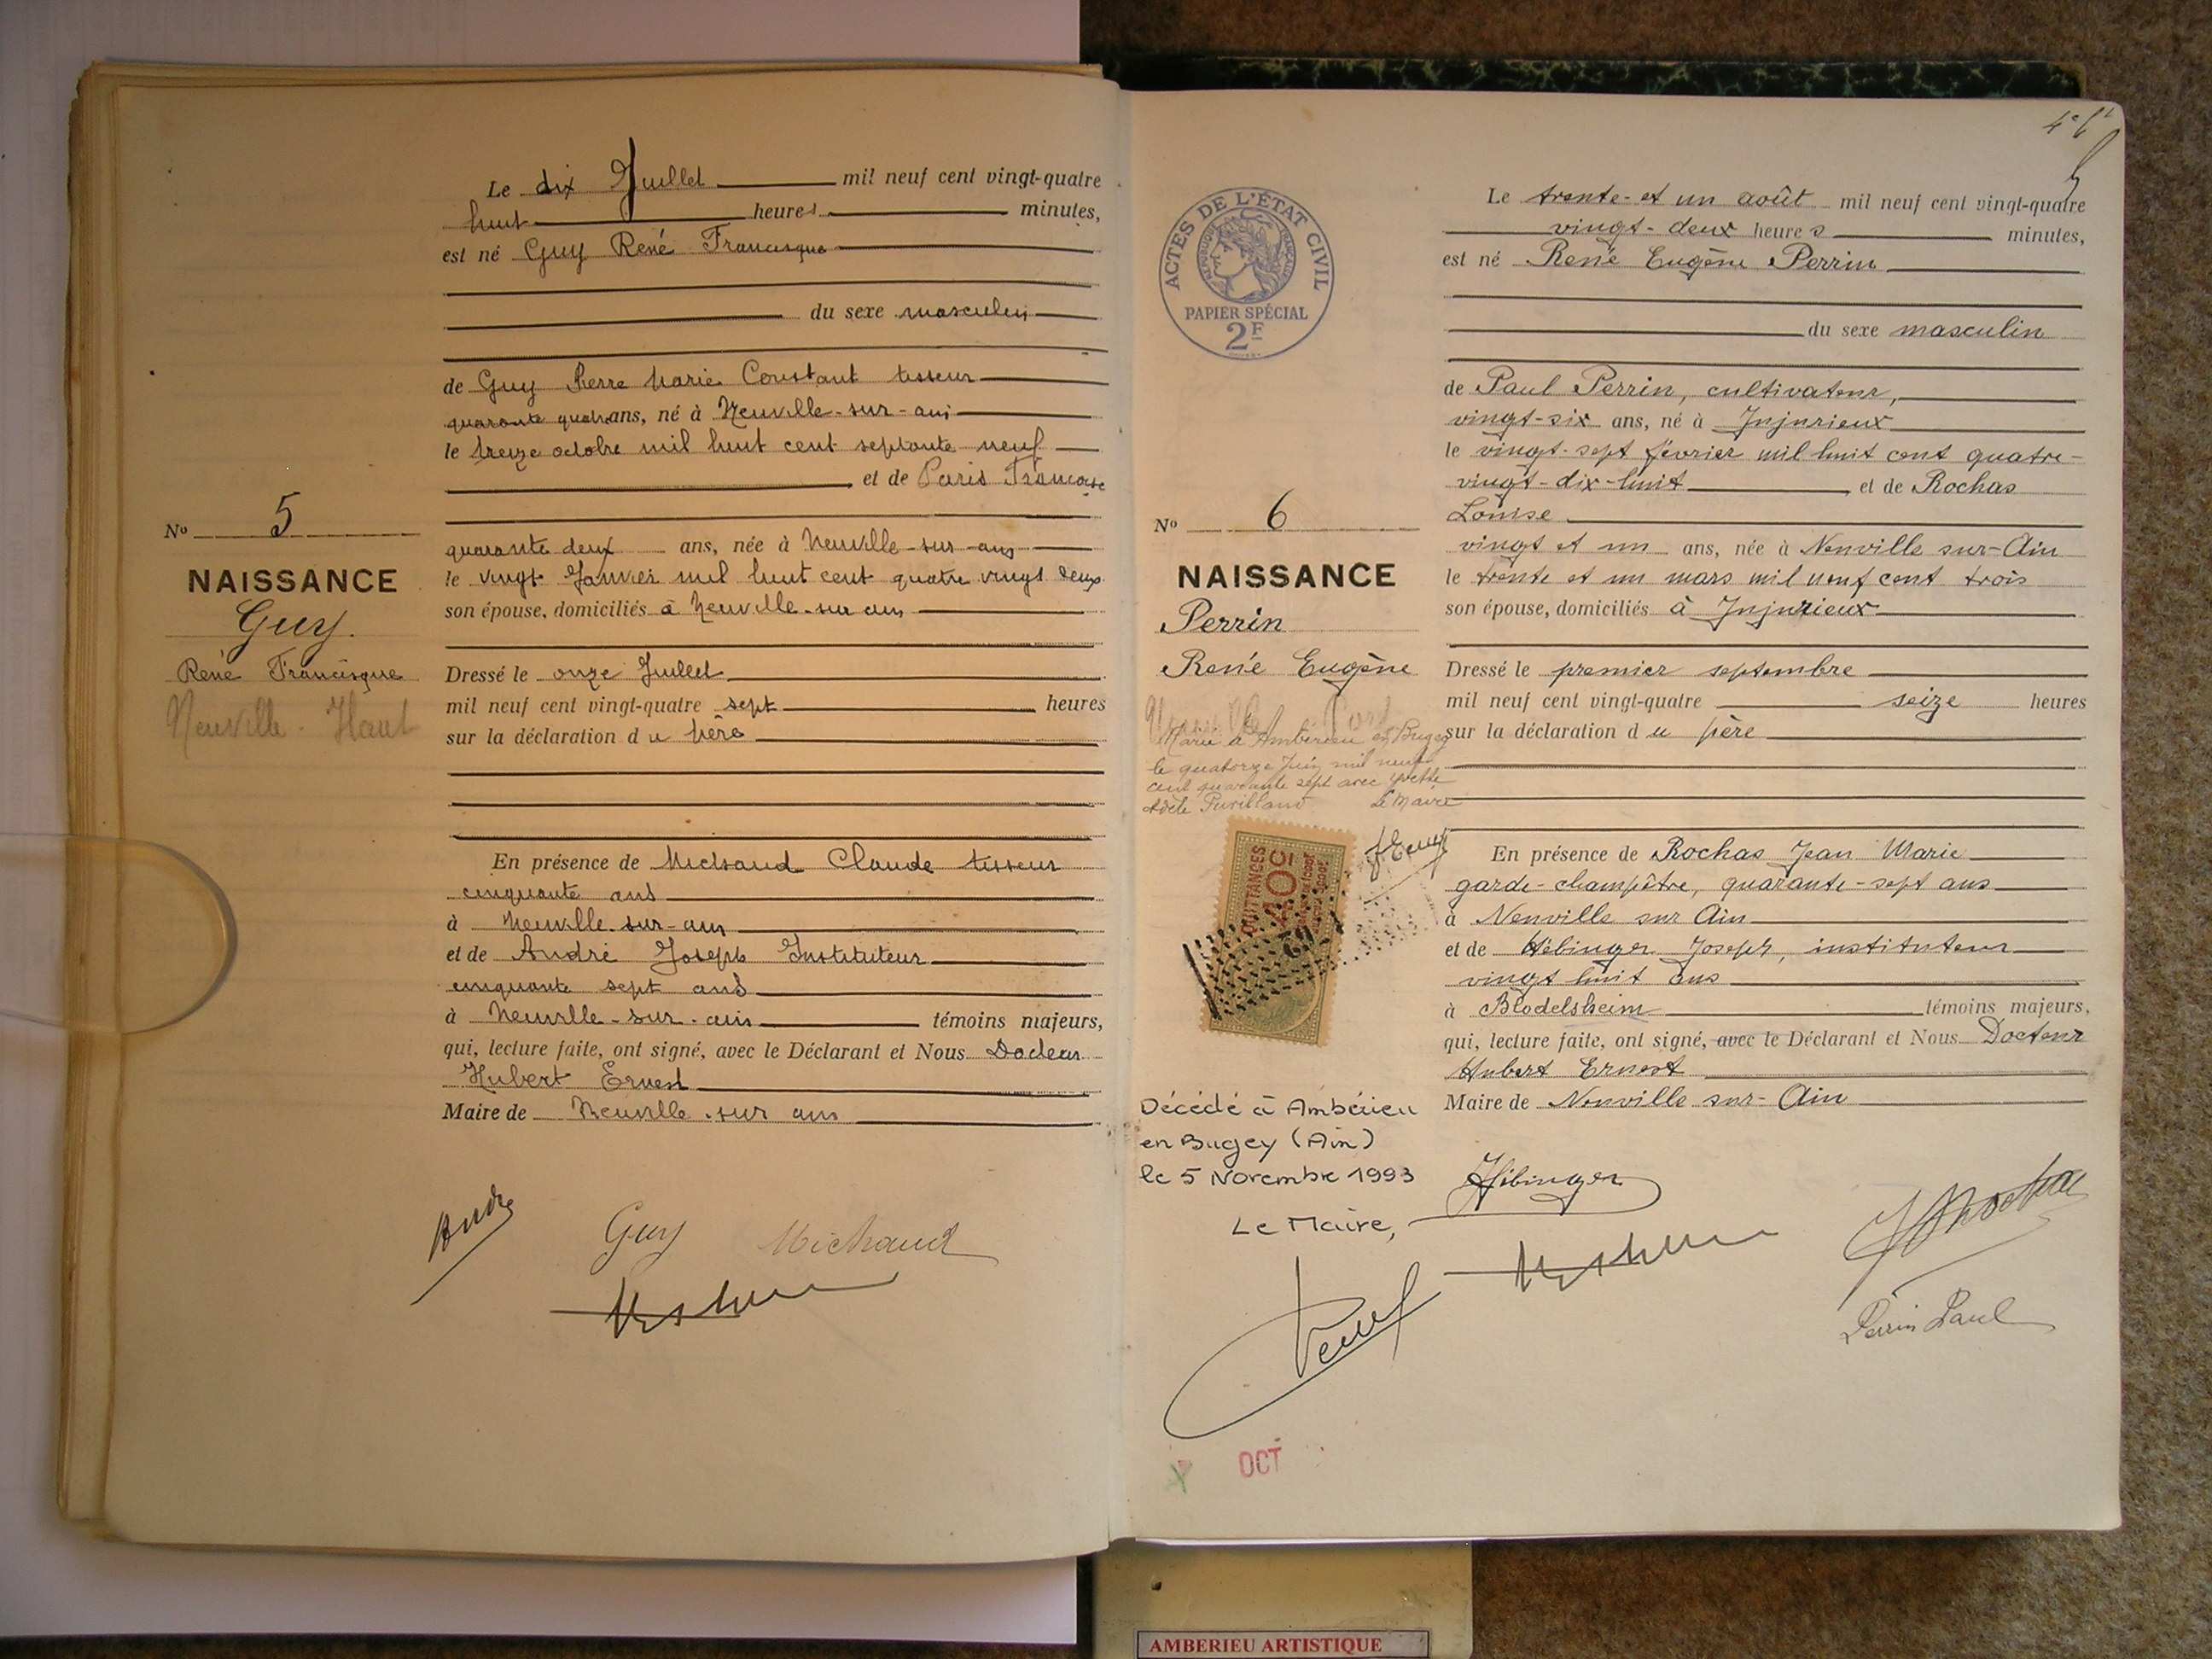 Le dix Juillet mil neuf cent vingt-quatre
huit heures minutes,
est né Guy René Francisque
du sexe masculin
de Guy Pierre Marie Constant tisseur
quarante quatre ans, né à Neuville-sur-ain
le treize octobre mil huit cent septante neuf
et de Paris Françoise
quarante deux ans, née à Neuville-sur-ain
le vingt Janvier mil huit cent quatre vingt deux
son épouse, domiciliés à Neuville-sur ain
Nº 5
NAISSANCE
Guy.
René Francisque
Neuville-Haut
Dressé le onze Juillet
mil neuf cent vingt-quatre sept heures
sur la déclaration du Père
En présence de Michaud Claude tisseur
cinquante ans
à Neuville-sur-ain
et de André Joseph Instituteur
cinquante sept ans
à Neuville-sur-ain témoins majeurs,
qui, lecture faite, ont signé, avec le Déclarant et Nous Docteur
Hubert Ernest
Maire de Neuville-sur ain
André
Guy Michaud
ACTES DE L'ÉTAT CIVIL
RÉPUBLIQUE FRANÇAISE
PAPIER SPÉCIAL
2F
Le trente-et un août mil neuf cent vingt-quatre
vingt-deux heures minutes,
est né René Eugène Perrin
du sexe masculin
de Paul Perrin, cultivateur,
vingt-six ans, né à Jujurieux
le vingt-sept février mil huit cent quatre-
vingt-dix-huit et de Rochas
Louise
vingt et un ans, née à Neuville sur-Ain
le trente et un mars mil neuf cent trois
son épouse, domiciliés à Jujurieux
Nº 6
NAISSANCE
Perrin
René Eugène
Marié à Ambérieu en Bugey
le quatorze Juin mil neuf
cent quarante sept avec Yvette
Adèle
Le Maire
QUITTANCES
10c
Dressé le premier septembre
mil neuf cent vingt-quatre seize heures
sur la déclaration du père
En présence de Rochas Jean Marie
garde-champêtre, quarante-sept ans
à Neuville sur Ain
et de Hébinger Joseph, instituteur
vingt huit ans
à Blodelsheim témoins majeurs,
qui, lecture faite, ont signé, avec le Déclarant et Nous Docteur
Hubert Ernest
Maire de Neuville sur-Ain
Décédé à Ambérieu
en Bugey (Ain)
le 5 Novembre 1993
Le Maire,
Hébinger
JRochas
Perrin Paul
OCT
AMBERIEU ARTISTIQUE